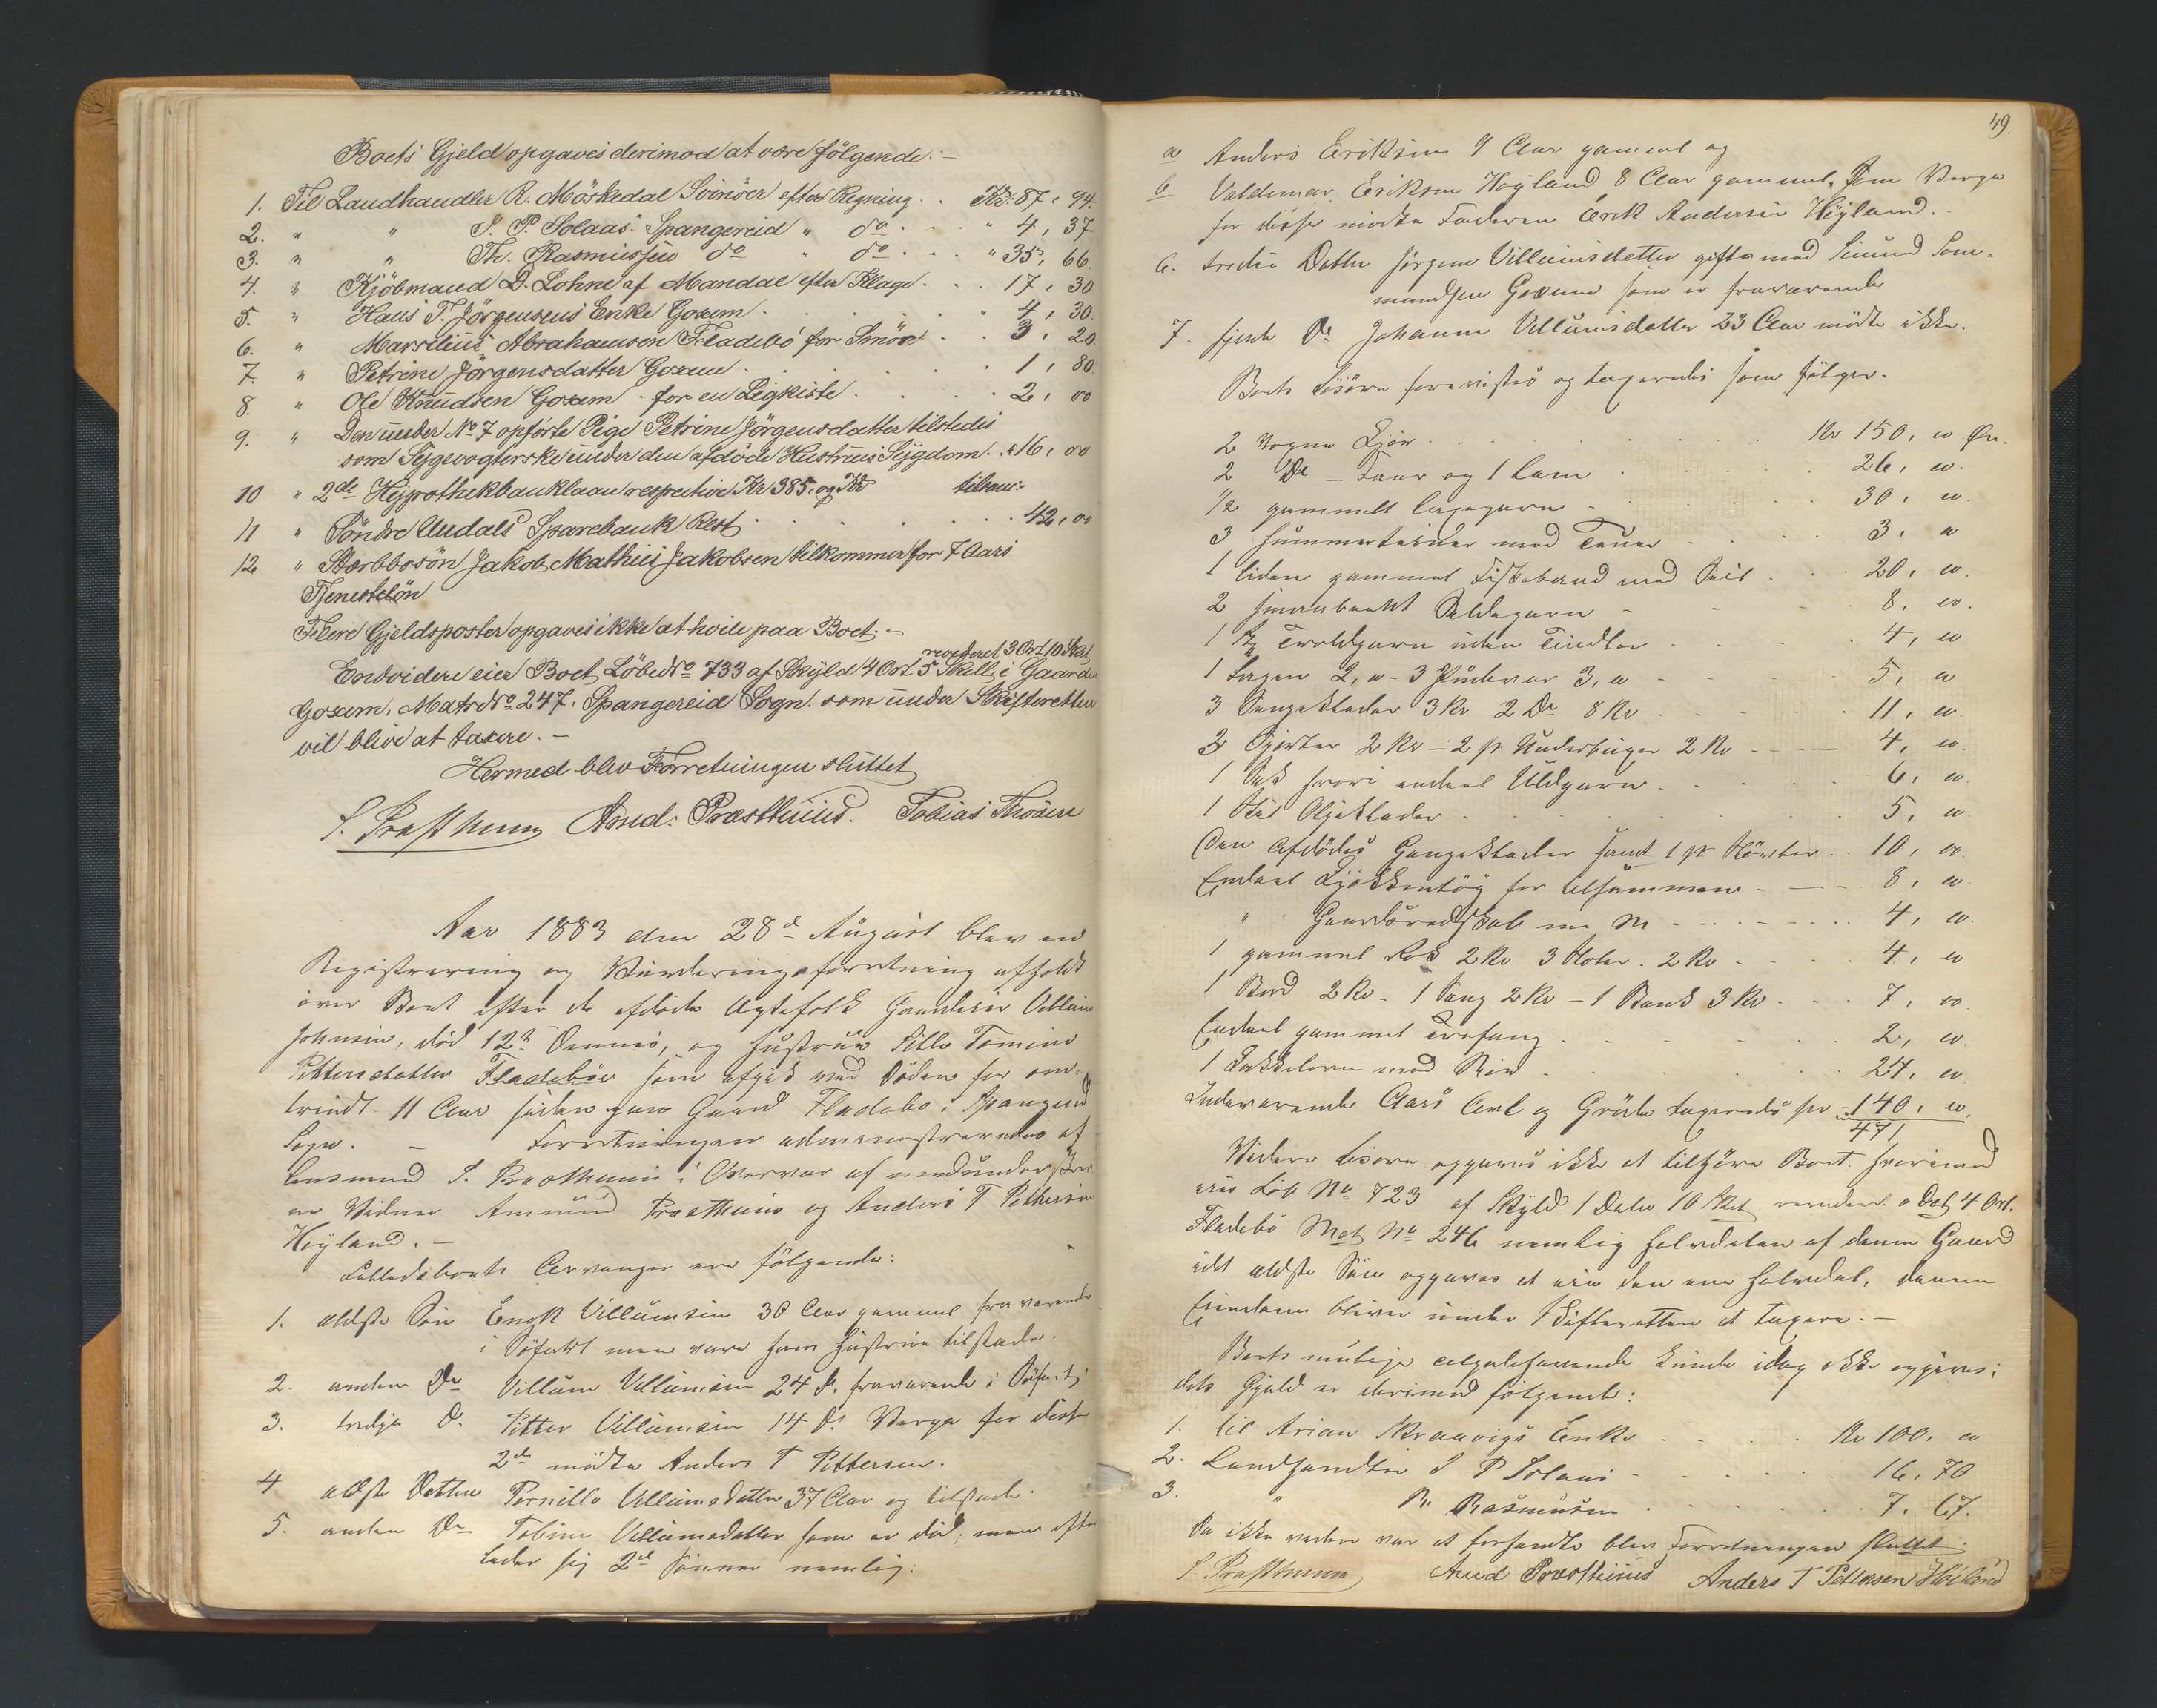 Boets Gjeld opgaves derimod at være følgende:-
1. Til Landhandler R. Möskedal Svinöer efter Regning . . Kr. 87, 94.
2. " " S. P. Solaas Spangereid " do . . . " 4, 37
3. " " Th. Rasmussen do " do . . . " 35, 66.
4. " Kjöbmand D. Lohne af Mandal efter Klage . . . 17, 30
5. " Hans T. Jörgensens Enke Goxem . . . " 4, 30.
6. " Marselius Abrahamsen Fladebö for Smör . . . 3, 20.
7. " Petrine Jörgensdatter Goxem . . . 1, 80.
8. " Ole Knudsen Goxem - for en Ligkiste . . . 2, 00
9. " Den under No 7 opförte Pige Petrine Jörgensdatter tilstedes
som Sygevogterske under den afdöde Hustrues Sygdom . " 16, 00
10 " 2de Hypothekbanklaan respective Kr 385, og Kr tilsam:
11 " Söndre Undals Sparebank Rest . . . 42, 00
12 " Stærbbosön Jakob Mathies Jakobsen tilkommer for 7 Aars
Tjenestelön
Flere Gjeldsposter opgaves ikke at hvile paa Boet. -
revideret 3 Ort 10 Skil
Endvidere eier Boet Löbe No 733 af Skyld 4 Ort 5 Skill, i Gaarden
Goxem, Matr No 247, Spangereid Sogn, som under Skifteretten
vil blive at taxere. -
Hermed blev Forretningen sluttet
S. Præsthuus Amd: Præsthuus. Tobias Thorsen
Aar 1883 den 28de August blev en
Registrering og Vurderingsforretning afholdt
over Boet efter de afdöde Ægtefolk Gaardeier Villum
Johnsen, död 12te Dennes, og Hustrue Sille Tomine
Pettersdatter Fladeböe som afgik ved Döden for om-
trindt 11 Aar siden paa Gaard Fladebö i Spangereid
Sogn. - Forretningen administreredes af
Lensmand S. Præsthuus i Overvær af medunderskrev-
ne Vidner Amund Præsthuus og Anders T Pettersen
Höyland. -
Fællesboets Arvinger ere fölgende:
1. ældste Sön Enok Villumsen 30 Aar gammel fraværende
i Söfart men være hans Hustrue tilstede.
2. anden Do Villum Villumsen 24 do, fraværende i Söfart
3. tredje do Petter Villumsen 14 do Verge for disse
2de mödte Anders T Pettersen.
4 ældste Datter Pernille Villumsdatter 37 Aar og tilstede.
5. anden Do Tobine Villumsdatter som er död; men efter
lader sig 2de Sönner nemlig:
49.
a Anders Eriksen 9 Aar gammel og
b Valdemar Eriksen Höyland 8 Aar gammel. Som Verge
for disse mödte Faderen Erik Andersen Höyland.
6. tredie Datter Jörgine Villumsdatter gift med Simund Som-
mundsen Goxem som er fraværende
7. fjerde Do Johanne Villumsdatter 23 Aar mödte ikke.
Boets Lösöre forevistes og taxeredes som fölger.
2 vogne Kjör . . . Kr 150, 00 Ör.
2 Do - Faar og 1 Lam . . . 26, 00.
1/2 gammelt Laxegarn . . . 30, 00
3 Hummerteiner med Touer . . . 3, 00
1 liden gammel Fiskebaad med Seil . . . 20, 00.
2 Sildegarn . . . 8, 00.
1 garn uden . . . 4, 00
1 2, 00 - 3 3, 00 . . . 5, 00
3 Sengeklæder 3 Kr 2 Do 8 Kr . . . 11, 00
2 Skjorter 2 Kr - 2 pr Underbuxer 2 Kr . . . 4, 00.
1 Sæk hvori endeel Uldgarn . . . 6, 00
1 Oljeklæder . . . 5, 00
Den Afdödes Gangeklæder samt 1 pr Stövler . . 10, 00.
Endeel Kjökkentöy for tilsammen . . . 8, 00
" Gaardsredskab m m . . . 4, 00.
1 gammel Rok 2 Kr 3 Stoler 2 Kr . . . 4, 00
1 Bord 2 Kr - 1 Seng 2 Kr - 1 Bænk 3 Kr . . . 7, 00
Endeel gammel Træfang . . . 2, 00.
1 Kakkelovn med Rör . . . 24, 00
Indeværende Aars Avl og Gröde taxeredes for 140, 00.
471,
Videre Lösöre opgaves ikke at tilhöre Boet. Hvorimod
eies Löb No 723 af Skyld 1 Daler 10 Skil revideret 0 Dal 4 Ort.
Fladebö Mat No 246 nemlig halvdelen af denne Gaard
idet ældste Sön opgaves at eie den ene halvdel, denne
Eiendom bliver under Skifteretten at taxere. -
Boets mulige tilgodehavende kunde idag ikke opgives;
dets Gjæld er derimod fölgende:
1. til Arian Skraavigs Enke . . . Kr 100, 00
2. Landhandler S P Solaas . . . 16, 70
3. " R. Rasmusen . . . 7, 67.
Da ikke videre var at forhandle blev Forretningen sluttet.
S Præsthuus Amd Præsthuus Anders T Pettersen Höiland